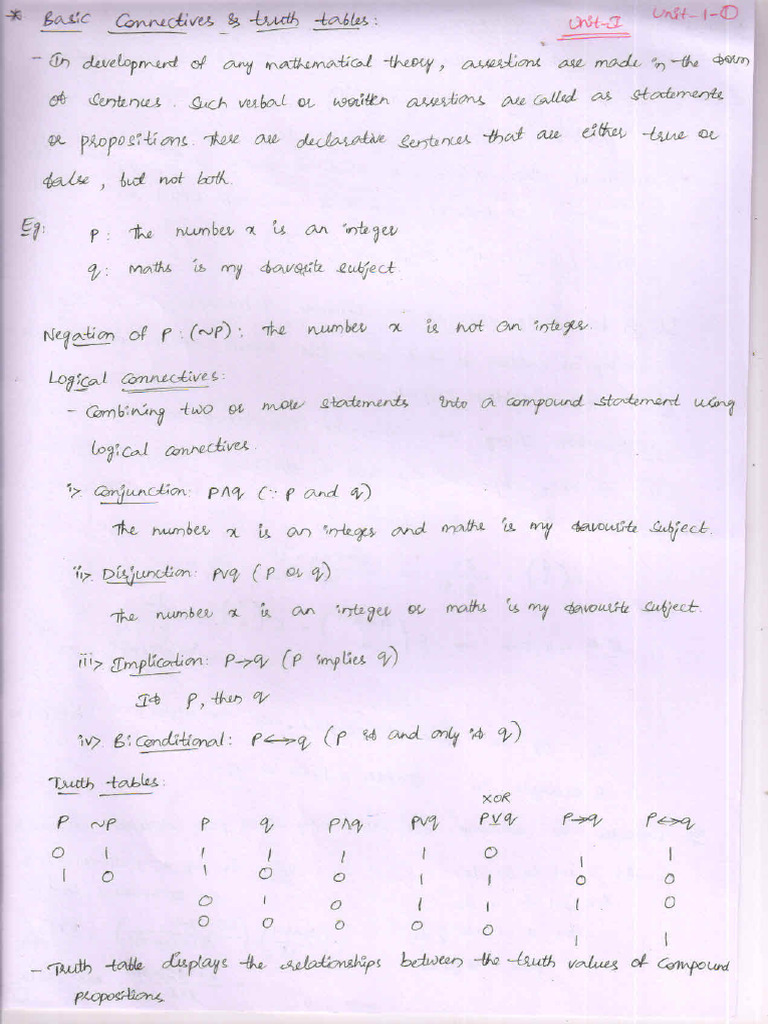 * Basic Connectives & truth tables: Unit-I Unit-1-①
- In development of any mathematical theory, assertions are made in the form
of sentences. Such verbal or written assertions are called as statements
or propositions. These are declarative sentences that are either true or
false, but not both.
Eg: P: The number x is an integer
q: maths is my favorite subject
Negation of P: (~P): The number x is not an integer.
Logical connectives:
- Combining two or more statements into a compound statement using
logical connectives.
i> Conjunction: P∧q (∵ P and q)
The number x is an integer and maths is my favourite subject.
ii> Disjunction: P∨q (P or q)
The number x is an integer or maths is my favourite subject.
iii> Implication: P→q (P implies q)
If P, then q
iv> BiConditional: P↔q (P if and only if q)
Truth tables:
XOR
P ~P P q P∧q P∨q P⊻q P→q P↔q
0 1 1 1 1 1 0 1 1
1 0 1 0 0 1 1 0 0
0 1 0 1 1 1 0
0 0 0 0 0 1 1
- Truth table displays the relationships between the truth values of compound
propositions